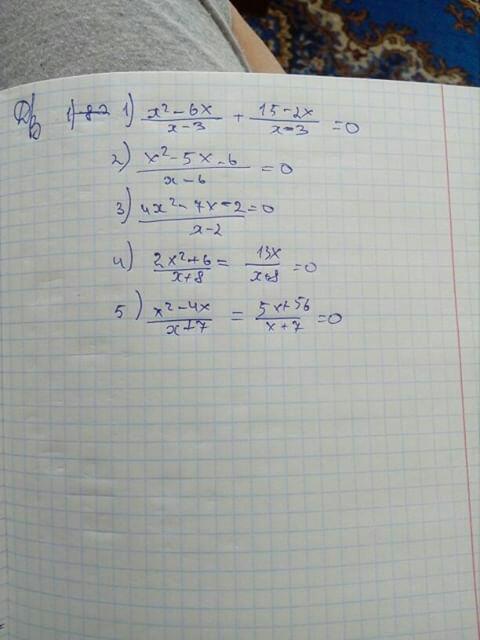 Д/з 1) 1) x²-6x / x-3 + 15-2x / x-3 =0
2) x²-5x-6 / x-6 =0
3) 4x²-7x-2 / x-2 =0
4) 2x²+6 / x+8 = 13x / x+8 =0
5) x²-4x / x+7 = 5x+56 / x+7 =0